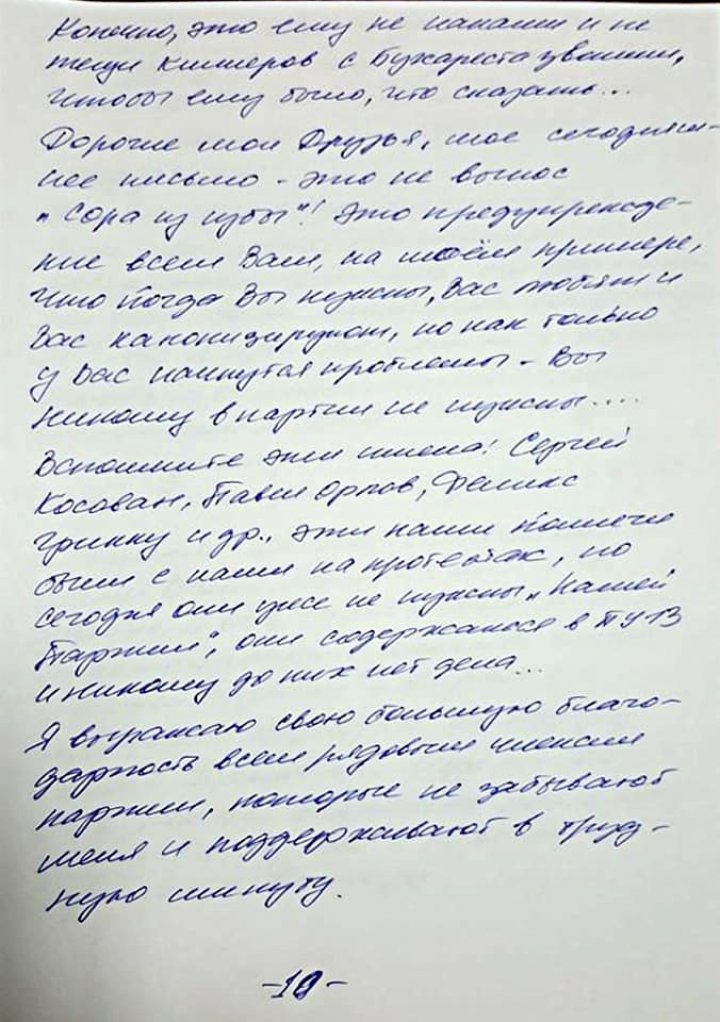 Конечно, это ему не мамаши и не
тещи киллеров с Бухареста звонили,
чтобы ему было, что сказать...
Дорогие мои Друзья, мое сегодняш-
нее письмо - это не вынос
"Сора из избы"! Это предупрежде-
ние всем Вам, на моём примере,
что тогда Вы нужны, Вас любят и
Вас канонизируют, но как только
у Вас начнутся проблемы - Вы
никому в партии не нужны....
Вспомните эти имена! Сергей
Косован, Павел Орлов, Феликс
Гринку и др., эти наши
были с нами на протестах, но
сегодня они уже не нужны "Нашей
Партии", они содержатся в ПУ13
и никому до них нет дела...
Я выражаю свою большую благо-
дарность всем рядовым членам
партии, которые не забывают
меня и поддерживают в труд-
ную минуту.
-10-